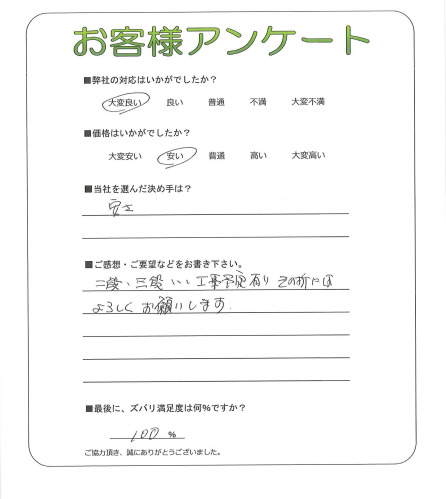 お客様アンケート
■弊社の対応はいかがでしたか?
大変良い 良い 普通 不満 大変不満
■価格はいかがでしたか?
大変安い 安い 普通 高い 大変高い
■当社を選んだ決め手は?
安さ
■ご感想・ご要望などをお書き下さい。
二段、三段、、、工事予定有り その折には
よろしくお願いします.
■最後に、ズバリ満足度は何%ですか?
100 %
ご協力頂き、誠にありがとうございました。